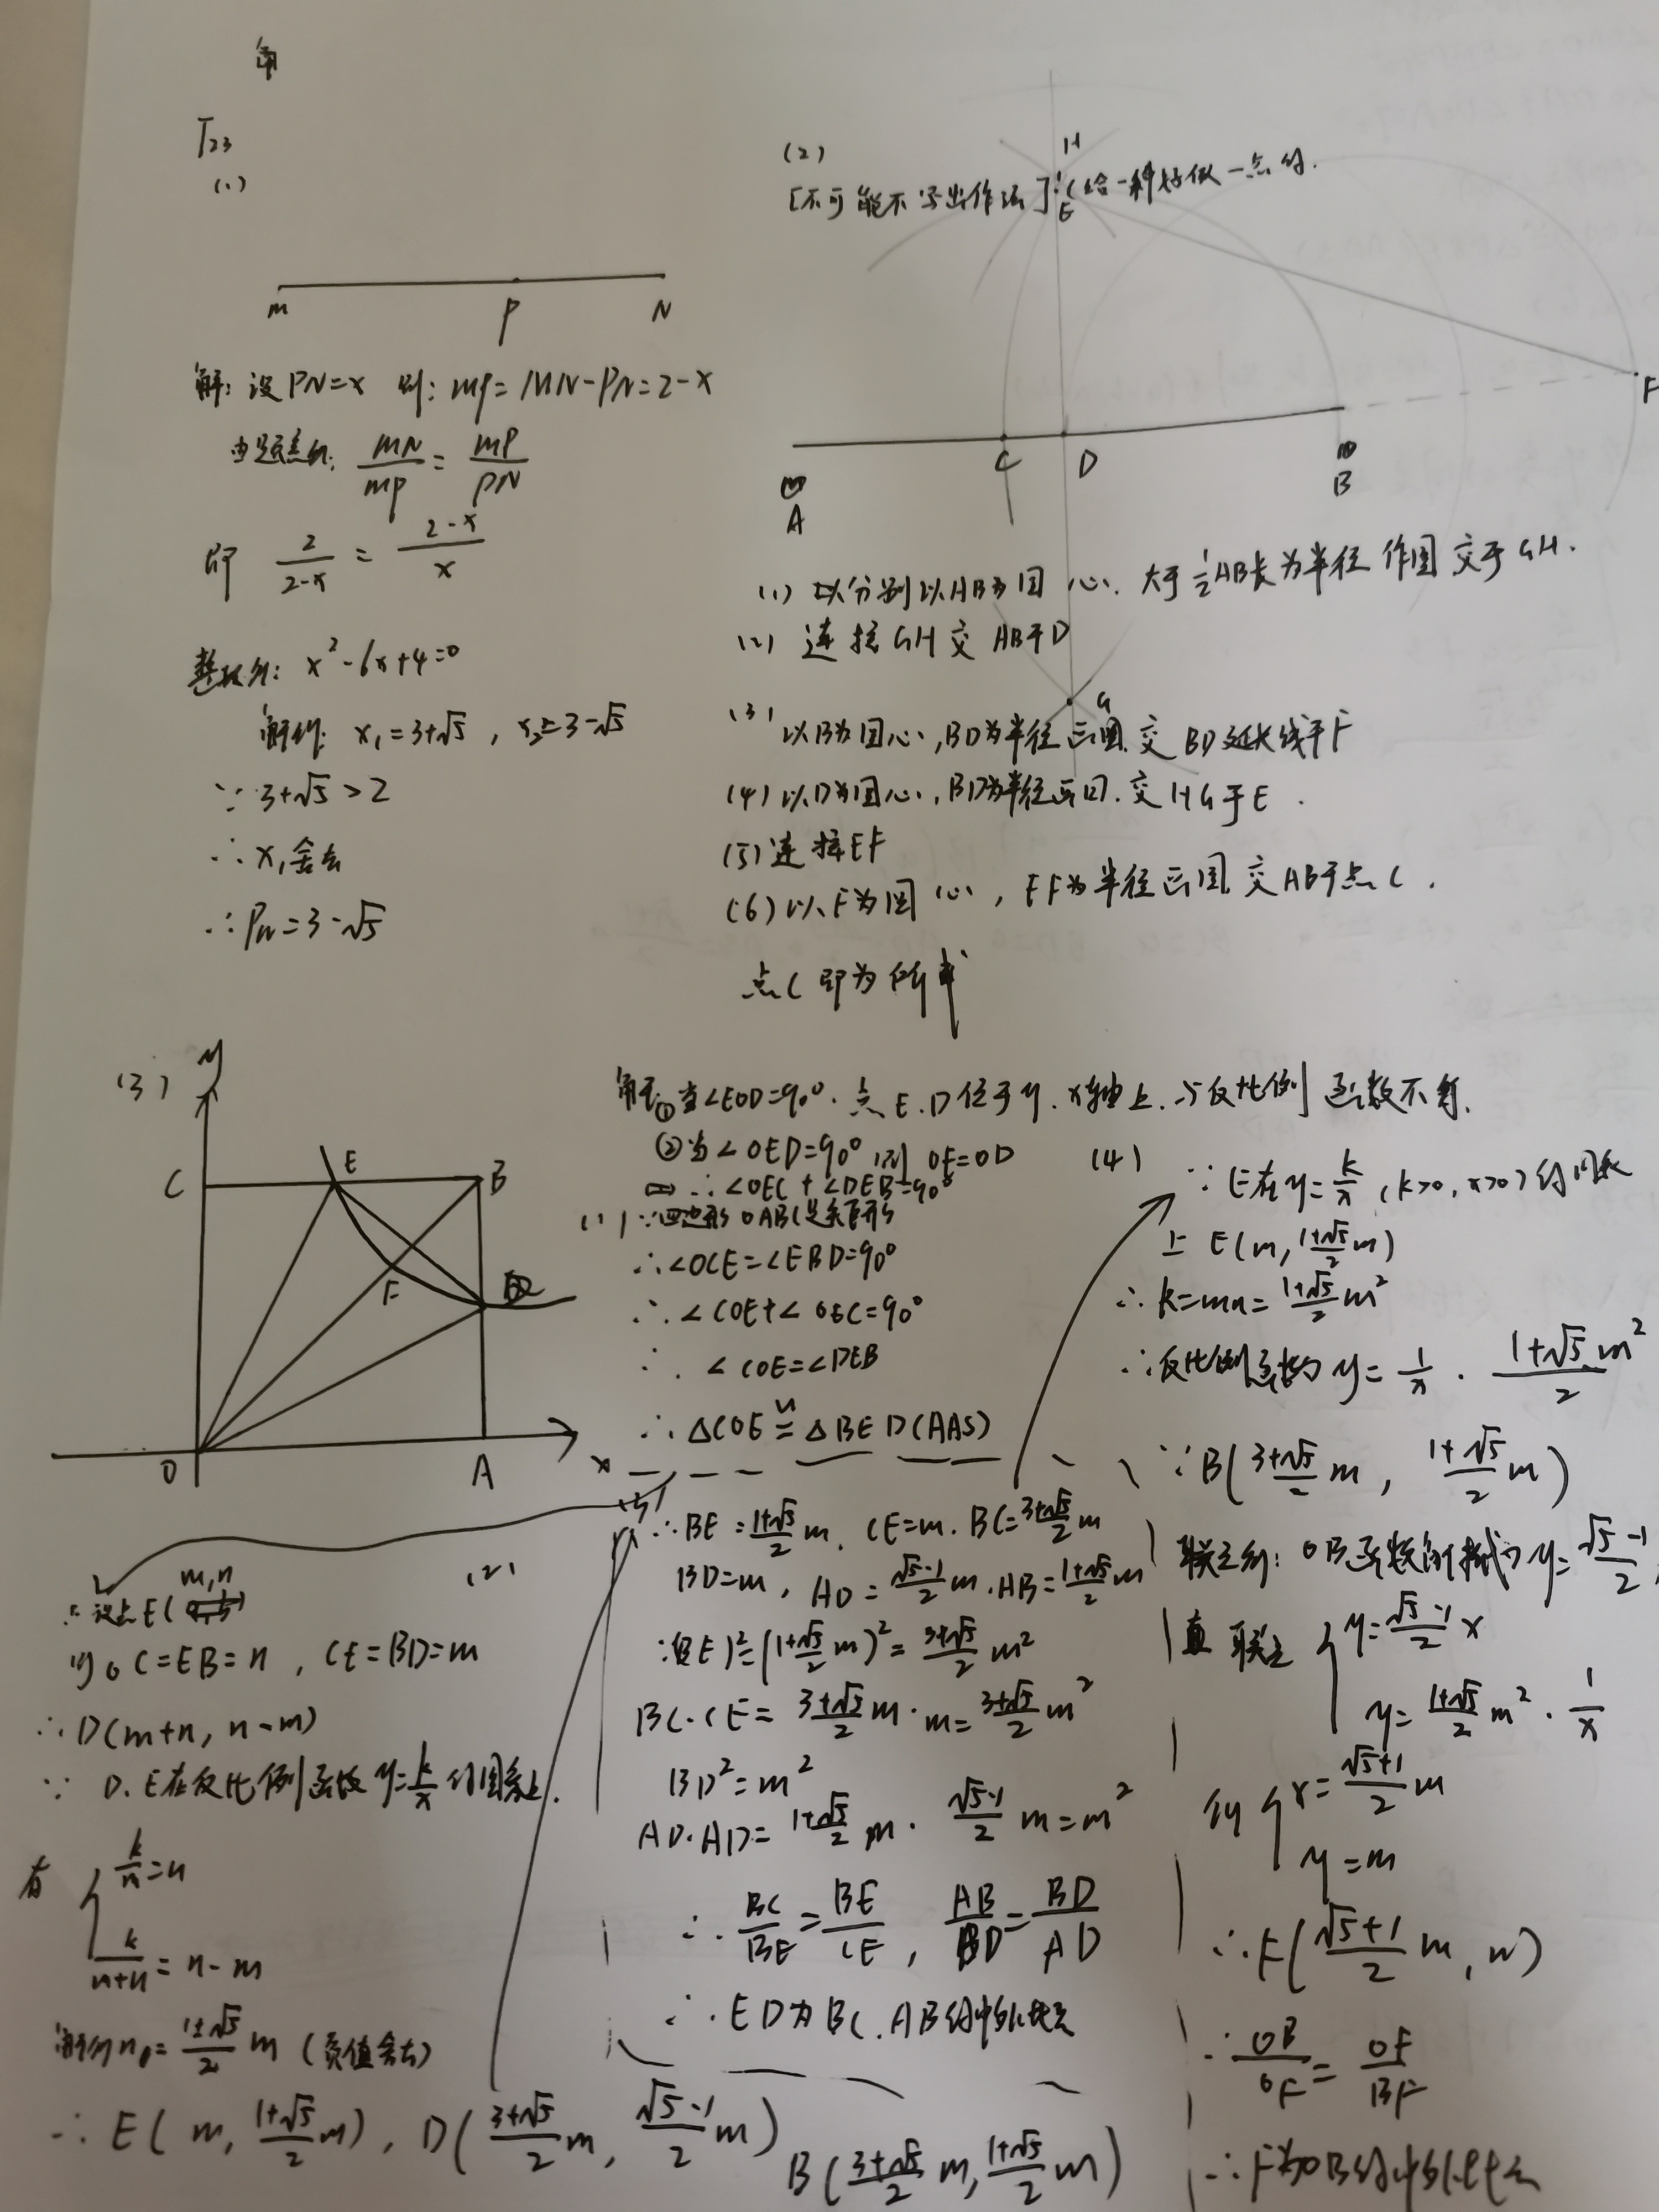 T23
(1)
M P N
解：设PN=x 则：MP=MN-PN=2-x
由题意知: MN/MP = MP/PN
即 2/(2-x) = (2-x)/x
整理得：x²-6x+4=0
解得: x₁=3+√5 , x₂=3-√5
∵ 3+√5 > 2
∴ x₁舍去
∴ PN=3-√5
(2)
[不可能不写出作法]
H
E
F
A C D B
G
(1) 分别以AB为圆心. 大于½AB长为半径 作圆 交于GH.
(2) 连接GH交AB于D
(3) 以B为圆心,BD为半径画圆.交BD延长线于F
(4) 以D为圆心,BD为半径画圆.交HG于E.
(5) 连接EF
(6) 以F为圆心, EF为半径画圆 交AB于点C.
点C即为所求
(3)
y
C E B
F
D
O A x
解①当∠EOD=90°.点E.D位于y.x轴上.与反比例函数不符.
②当∠OED=90° 则 OE=OD
∴∠OEC+∠DEB=90°
(1) ∵四边形OABC是矩形
∴∠OCE=∠EBD=90°
∴∠COE+∠OEC=90°
∴ ∠COE=∠DEB
∴ △COE≌△BED(AAS)
设点E(m,n)
则OC=EB=n , CE=BD=m
∴D(m+n, n-m)
∵ D.E在反比例函数y=k/x的图象上.
有 { k/m=n
k/(m+n)=n-m
解得n=(1±√5)/2 m (负值舍去)
∴ E(m, (1+√5)/2 m) , D((3+√5)/2 m, (√5-1)/2 m)
B((3+√5)/2 m, (1+√5)/2 m)
(2)
(3)
∴BE=(1+√5)/2 m. CE=m. BC=(3+√5)/2 m
BD=m, AD=(√5-1)/2 m. AB=(1+√5)/2 m
∴(BE)²=((1+√5)/2 m)²=(3+√5)/2 m²
BC·CE=(3+√5)/2 m·m=(3+√5)/2 m²
BD²=m²
AD·AD=(1+√5)/2 m·(√5-1)/2 m=m²
∴ BC/BE=BE/CE, AB/BD=BD/AD
∴ED为BC.AB的中外比点
(4)
∵E在y=k/x (k>0, x>0)的图象
上 E(m, (1+√5)/2 m)
∴k=mn=(1+√5)/2 m²
∴反比例函数为 y=1/x · (1+√5)/2 m²
∵B((3+√5)/2 m, (1+√5)/2 m)
联立得: OB函数解析式为y=(√5-1)/2
联立 { y=(√5-1)/2 x
y=(1+√5)/2 m²·1/x
得 { x=(√5+1)/2 m
y=m
∴F((√5+1)/2 m, m)
∴ OB/OF=OF/BF
∴F为OB的中外比点